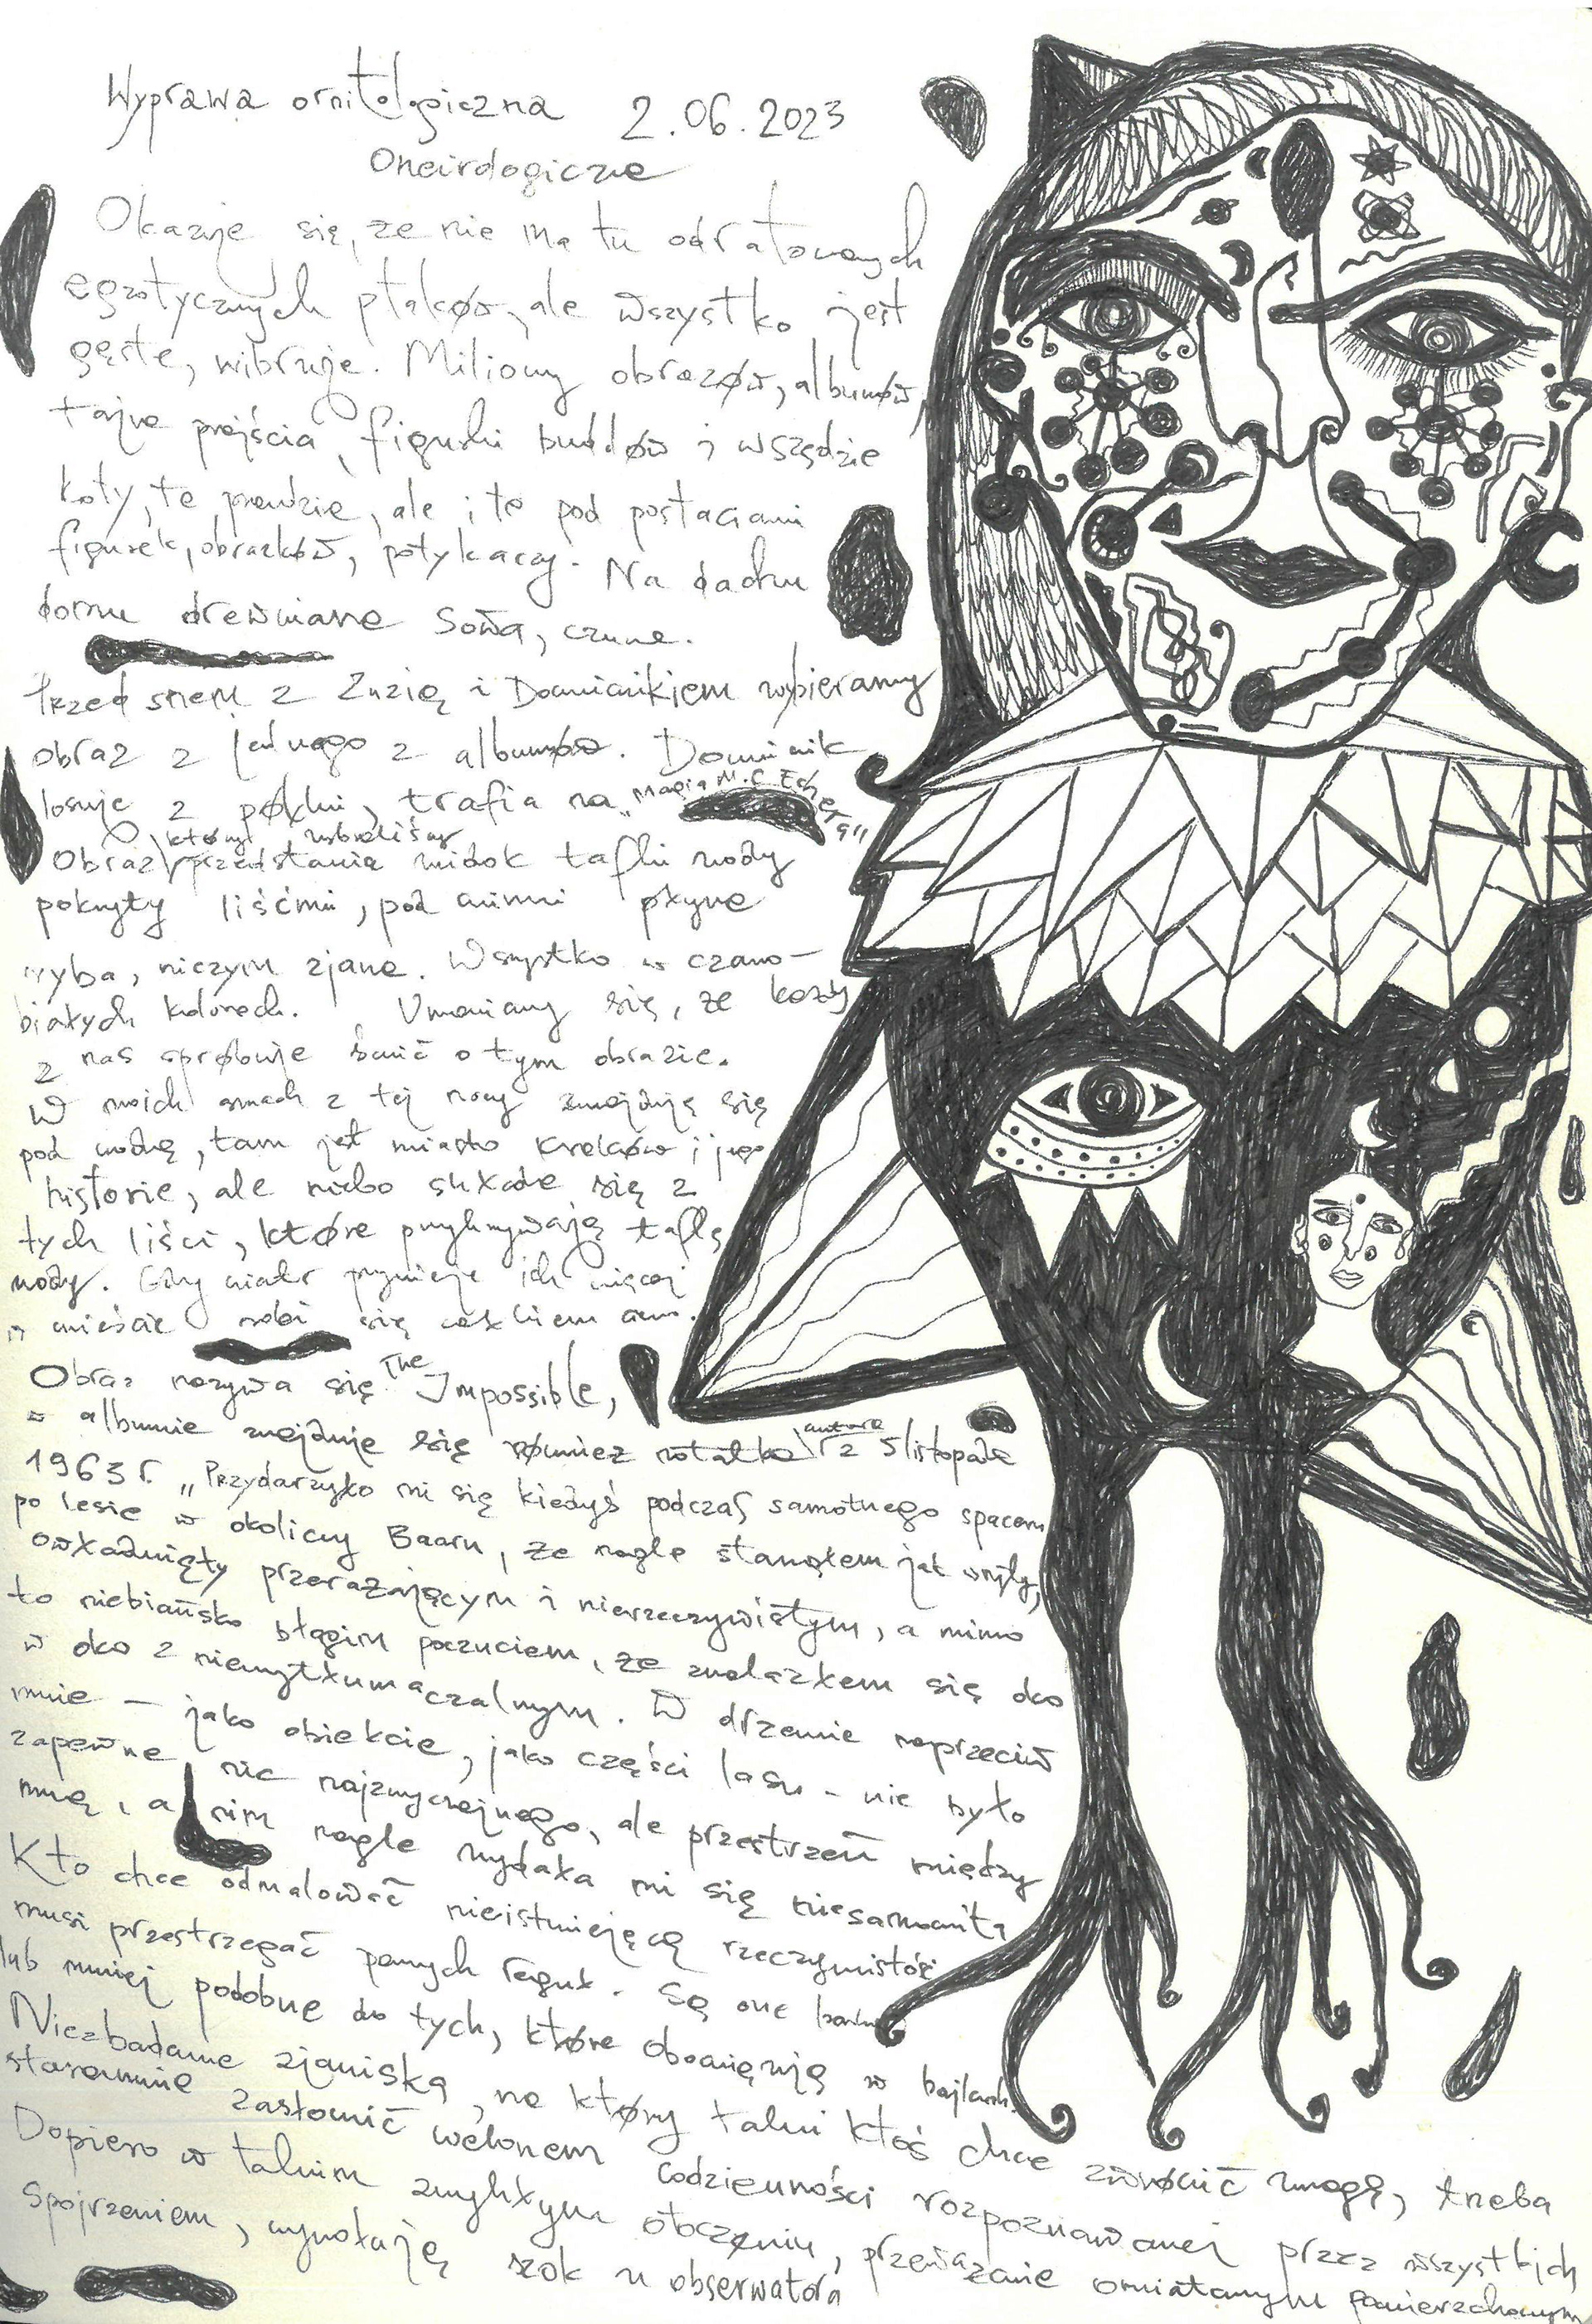 Wyprawa ornitologiczna 2.06.2023
Oneirologiczne
Okazuje się, że nie ma tu odratowanych
egzotycznych ptaków, ale wszystko jest
gęste, wibruje. Miliony obrazów, albumów,
tajne przejścia, figurki buddów i wszędzie
koty, te prawdzie, ale i te pod postaciami
figurek, obrazków, potykaczy. Na dachu
domu drewniane sowa, czuwa.
Przed snem z Zuzią i Dominikiem wybieramy
obraz z jednego z albumów. Dominik
losuje z półki, trafia na "Magia M.C. Eschera"
Obraz który wybraliśmy przedstawia widok tafli wody
pokryty liśćmi, pod nimi płynie
ryba, niczym zjawa. Wszystko w czarno-
białych kolorach. Umawiamy się, że każdy
z nas spróbuje śnić o tym obrazie.
W moich snach z tej nocy znajduję się
pod wodą, tam jest miasto Kraków i jego
historie, ale niebo składa się z
tych liści, które przykrywają taflę
wody. Gdy wiatr przywieje ich więcej
w mieście robi się całkiem
Obraz nazywa się The Impossible,
w albumie znajduje się również notatka autora z 5 listopada
1963 r. "Przydarzyło mi się kiedyś podczas samotnego spaceru
po lesie w okolicy Baarn, że nagle stanąłem jak wryty,
owładnięty przerażającym i nierzeczywistym, a mimo
to niebiańsko błogim poczuciem, że znalazłem się oko
w oko z niewytłumaczalnym. W drzewie naprzeciw
mnie - jako obiekcie, jako części lasu - nie było
zapewne nic nadzwyczajnego, ale przestrzeń między
mną, a nim nagle wydała mi się niesamowita
Kto chce odmalować nieistniejącą rzeczywistość
musi przestrzegać pewnych reguł. Są one bardziej
lub mniej podobne do tych, które obowiązują w bajkach.
Niezbadane zjawiska, na który taki ktoś chce zwrócić uwagę, trzeba
starannie zasłonić welonem codzienności rozpoznawanej przez wszystkich
Dopiero w takim zwykłym otoczeniu, przewiązanie omiatanym powierzchownym
Spojrzeniem, wywołują szok u obserwatora